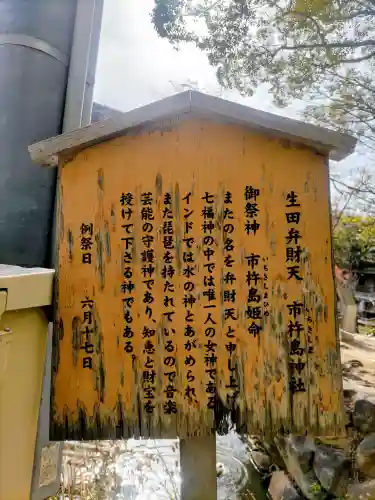 生田弁財天 市杵島神社
いちきしま
御祭神 市杵島姫命
いちきしまひめ
またの名を弁財天と申し上げ
七福神の中では唯一人の女神である
インドでは水の神とあがめられ、
また琵琶を持たれているので音楽
芸能の守護神であり、知恵と財宝を
授けて下さる神でもある
例祭日 六月十七日